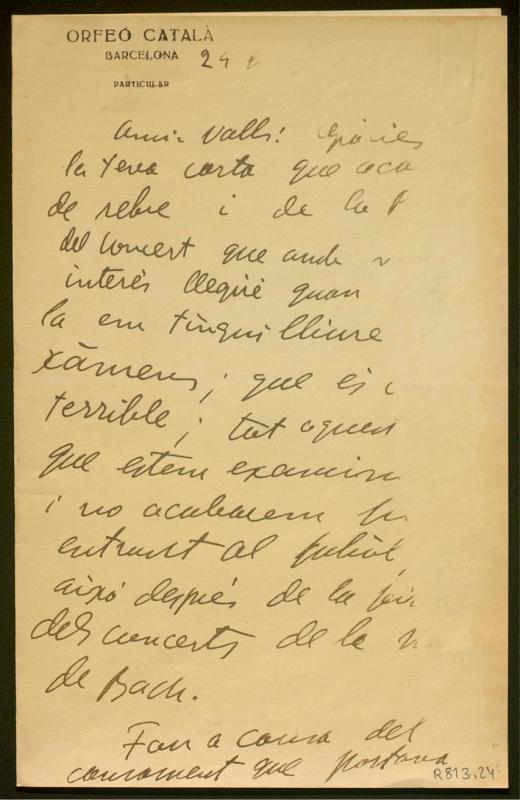 ORFEÓ CATALÀ
BARCELONA
PARTICULAR
24
Amic Valls! Gràcies
la teva carta que aca
de rebre i de la
del concert que amb
interès llegiré quan
la em tingui lliure
xàmens; que és
terrible; tot aquest
que estem examin
i no acabarem
entrant al juliol,
això després de la
dels concerts de la
de Bach.
Fou a causa del
cansament que portava
R813.24